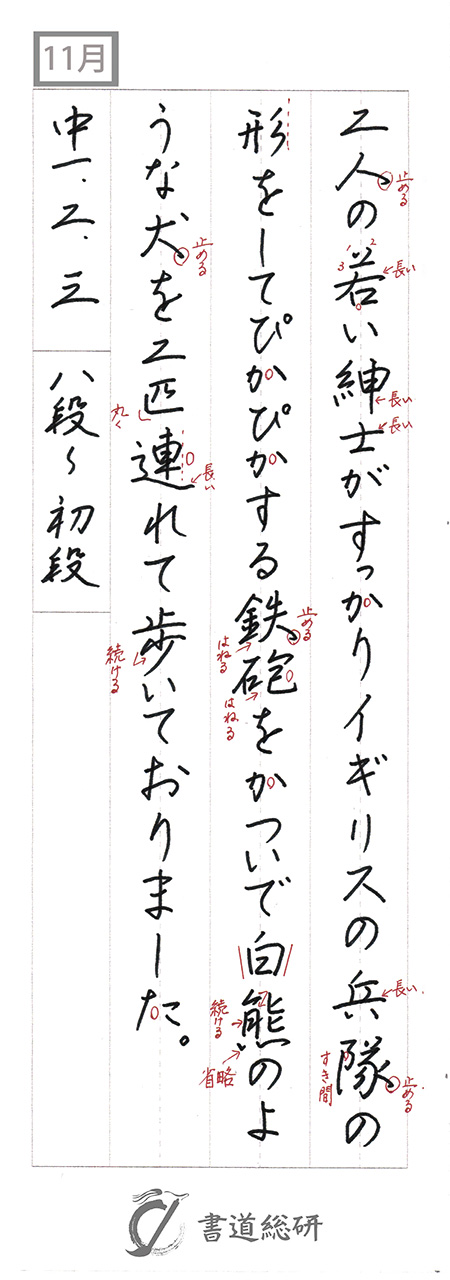 11月
二人の若い紳士がすっかりイギリスの兵隊の
形をしてぴかぴかする鉄砲をかついで白熊のよ
うな犬を二匹連れて歩いておりました。
中一、二、三 八段〜初段
止める
1 2 3
長い
長い
長い
長い
すき間
止める
止める
はねる
はねる
続ける
省略
止める
丸く
長い
続ける
書道総研